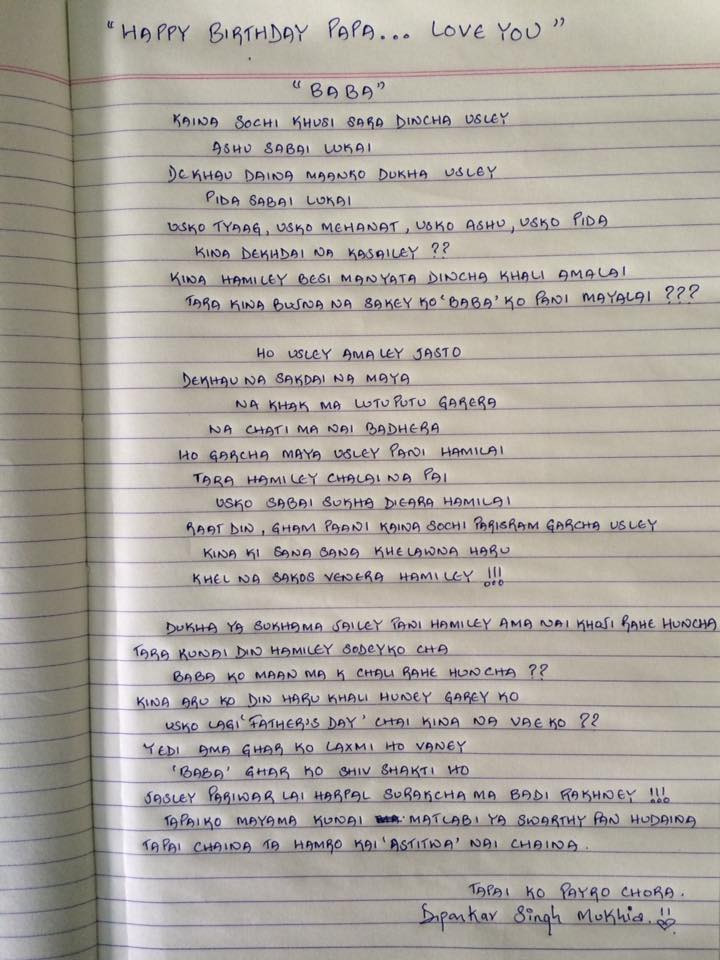 "HAPPY BIRTHDAY PAPA... LOVE YOU"
"BABA"
KAINA SOCHI KHUSI SARA DINCHA USLEY
ASHU SABAI LUKAI
DEKHAU DAINA MAANKO DUKHA USLEY
PIDA SABAI LUKAI
USKO TYAAG, USKO MEHANAT, USKO ASHU, USKO PIDA
KINA DEKHDAI NA KASAILEY ??
KINA HAMILEY BESI MANYATA DINCHA KHALI AMALAI
TARA KINA BUJNA NA SAKEY KO 'BABA' KO PANI MAYALAI ???
HO USLEY AMALEY JASTO
DEKHAU NA SAKDAI NA MAYA
NA KHAK MA LUTUPUTU GARERA
NA CHATI MA NAI BADHERA
HO GARCHA MAYA USLEY PANI HAMILAI
TARA HAMILEY CHALAI NA PAI
USKO SABAI SUKHA DIEARA HAMILAI
RAAT DIN, GHAM PAANI KAINA SOCHI PARISRAM GARCHA USLEY
KINA KI SANA SANA KHELAWNA HARU
KHEL NA SAKOS VENERA HAMILEY !!!
DUKHA YA SUKHAMA JAILEY PANI HAMILEY AMA NAI KHOJI RAHE HUNCHA
TARA KUNAI DIN HAMILEY SODEYKO CHA
BABA KO MAAN MA K CHALI RAHE HUNCHA ??
KINA ARU KO DIN HARU KHALI HUNEY GAREY KO
USKO LAGI 'FATHER'S DAY' CHAI KINA NA VAE KO ??
YEDI AMA GHAR KO LAXMI HO VANEY
'BABA' GHAR KO SHIV SHAKTI HO
JASLEY PARIWAR LAI HARPAL SURAKCHA MA BADI RAKHNEY !!!
TAPAIKO MAYAMA KUNAI MATLABI YA SWARTHY PAN HUDAINA
TAPAI CHAINA TA HAMRO KAI 'ASTITWA' NAI CHAINA.
TAPAI KO PAYRO CHORA.
Dipankar Singh Mukhia.!!